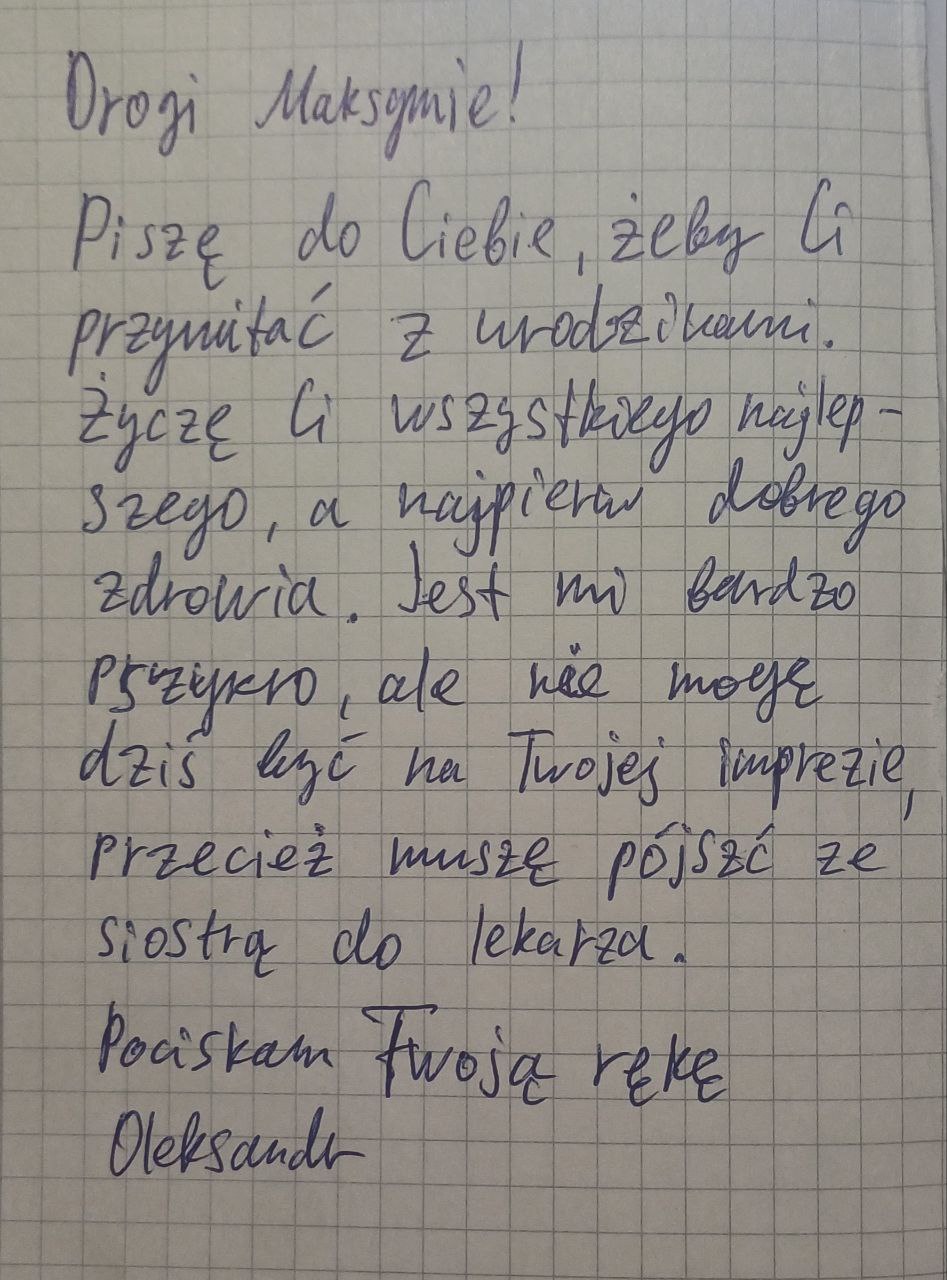 Drogi Maksymie!
Piszę do Ciebie, żeby Ci
przywitać z urodzinami.
Życzę Ci wszystkiego najlep-
szego, a najpierw dobrego
zdrowia. Jest mi bardzo
przykro, ale nie mogę
dziś być na Twojej imprezie,
przecież muszę pójszć ze
siostrą do lekarza.
Pociskam Twoją rękę
Oleksandr